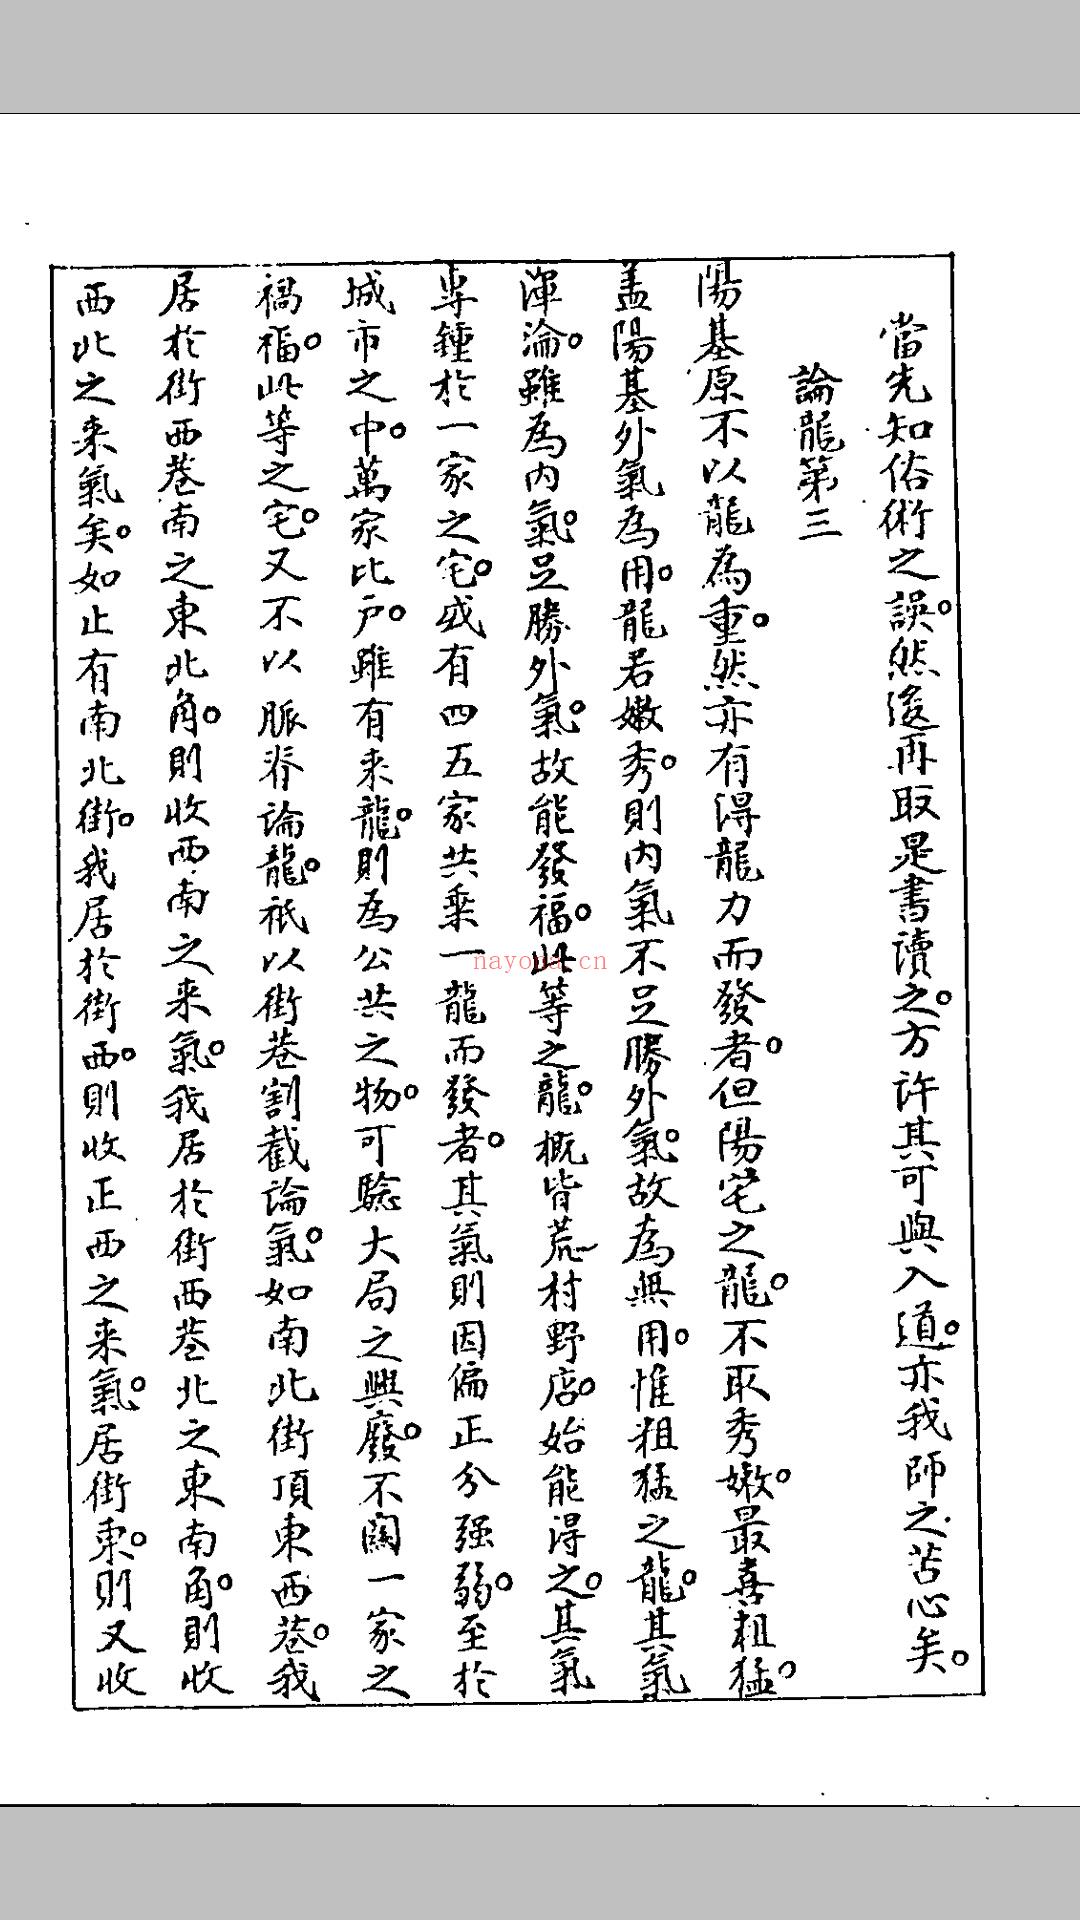 當先知俗術之誤。然後再取是書讀之。方許其可與入道。亦我師之苦心矣。
論龍第三
陽基原不以龍為重。然亦有得龍力而發者。但陽宅之龍。不取秀嫩。最喜粗猛。
盖陽基外氣為用。龍若嫩秀。則内氣不足勝外氣。故為無用。惟粗猛之龍。其氣
渾淪。雖為内氣。足勝外氣。故能發福。此等之龍。概皆荒村野店。始能得之。其氣
專鍾於一家之宅。或有四五家共乘一龍而發者。其氣則因偏正分强弱。至於
城市之中。萬家比戶。雖有来龍。則為公共之物。可驗大局之興廢。不關一家之
禍福。此等之宅。又不以脈脊論龍。祇以街巷割截論氣。如南北街頂東西巷。我
居於街西巷南之東北角。則收西南之来氣。我居於街西巷北之東南角。則收
西北之来氣矣。如止有南北街。我居於街西。則收正西之来氣。居街東。則又收
nayona.cn